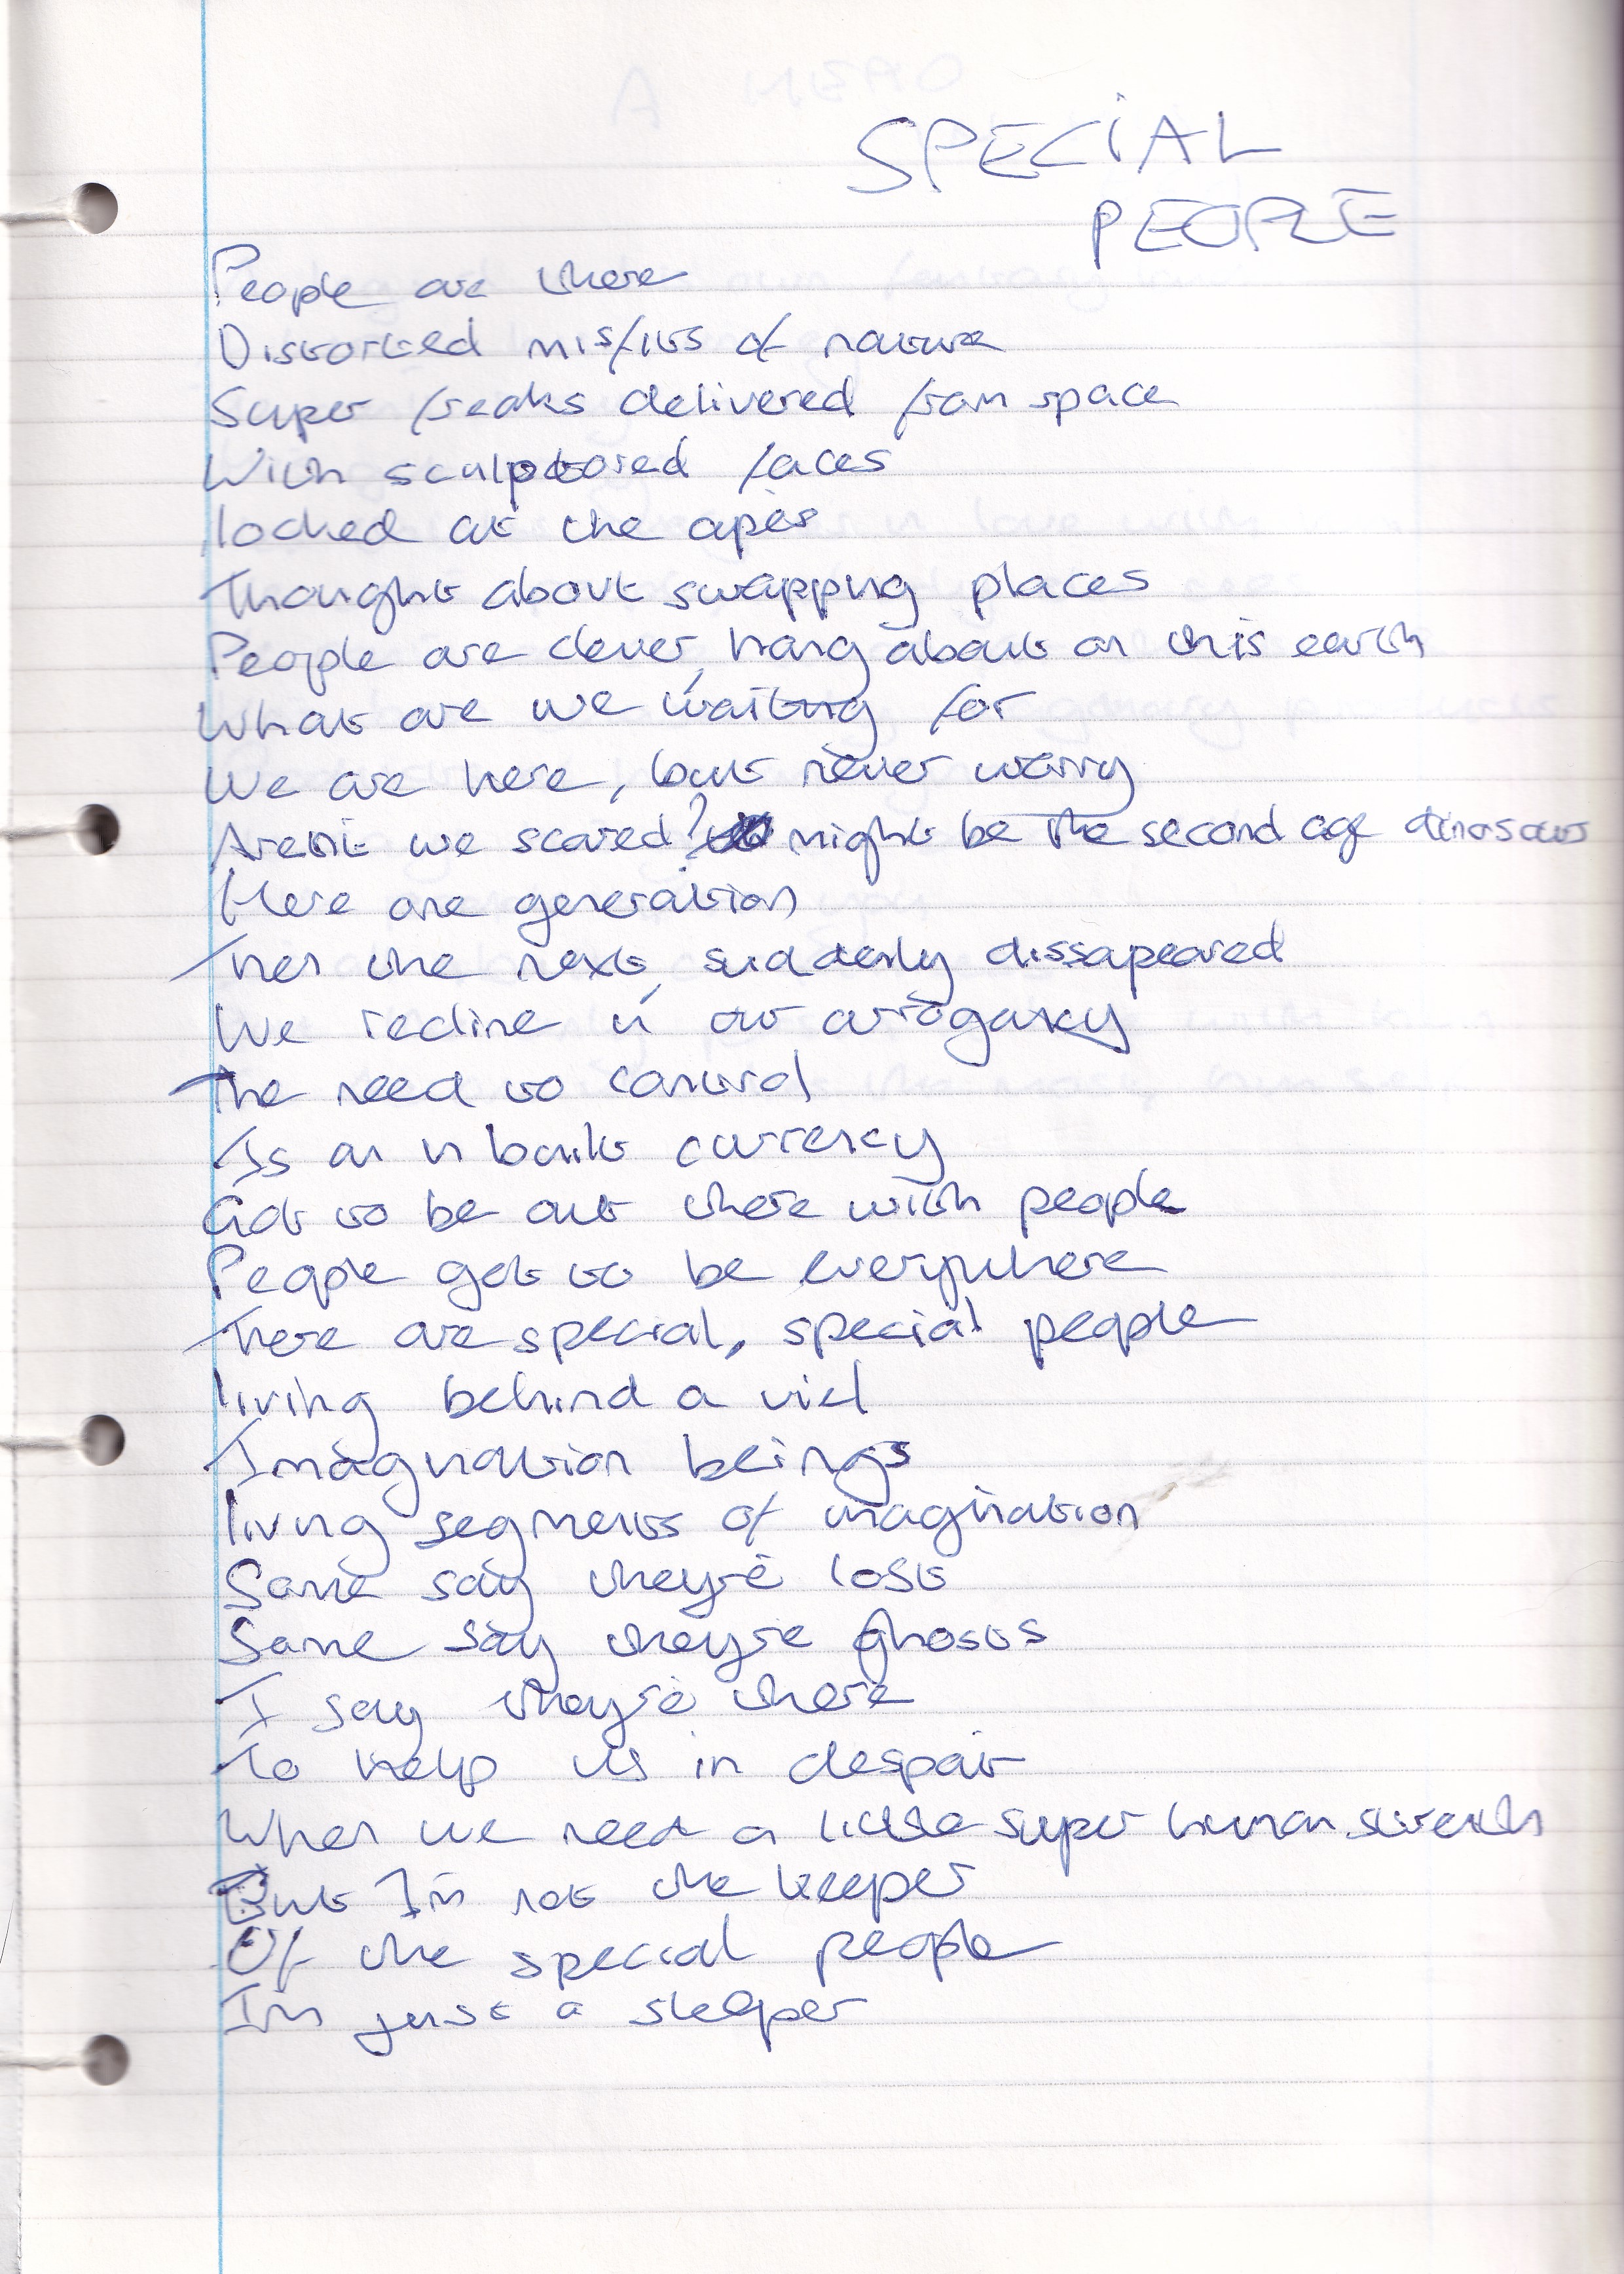 SPECIAL
PEOPLE
People are there
Distorted misfits of nature
Super freaks delivered from space
With sculptored faces
looked at the apes
Thought about swapping places
People are clever, hang about on this earth
What are we waiting for
We are here, but never worry
Arent we scared? might be the second age dinosaurs
Here one generation
Then the next, suddenly dissapeared
We recline in our arrogancy
The need to control
Is an in built currency
Got to be out there with people
People got to be everywhere
There are special, special people
living behind a viel
Imagination beings
living segments of imagination
Some say they're lost
Some say they're ghosts
I say they're there
To help us in despair
When we need a little super human strenth
But I'm not the keeper
Of the special people
Im just a sleeper